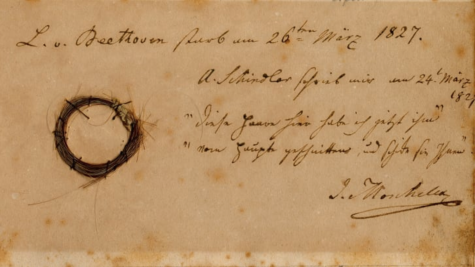 L. v. Beethoven starb am 26ten März 1827.
A. Schindler schrieb mir am 24t März
1827
"diese Haare hier habe ich jetzt ihm"
"vom Haupte geschnitten, und
J. Moscheles